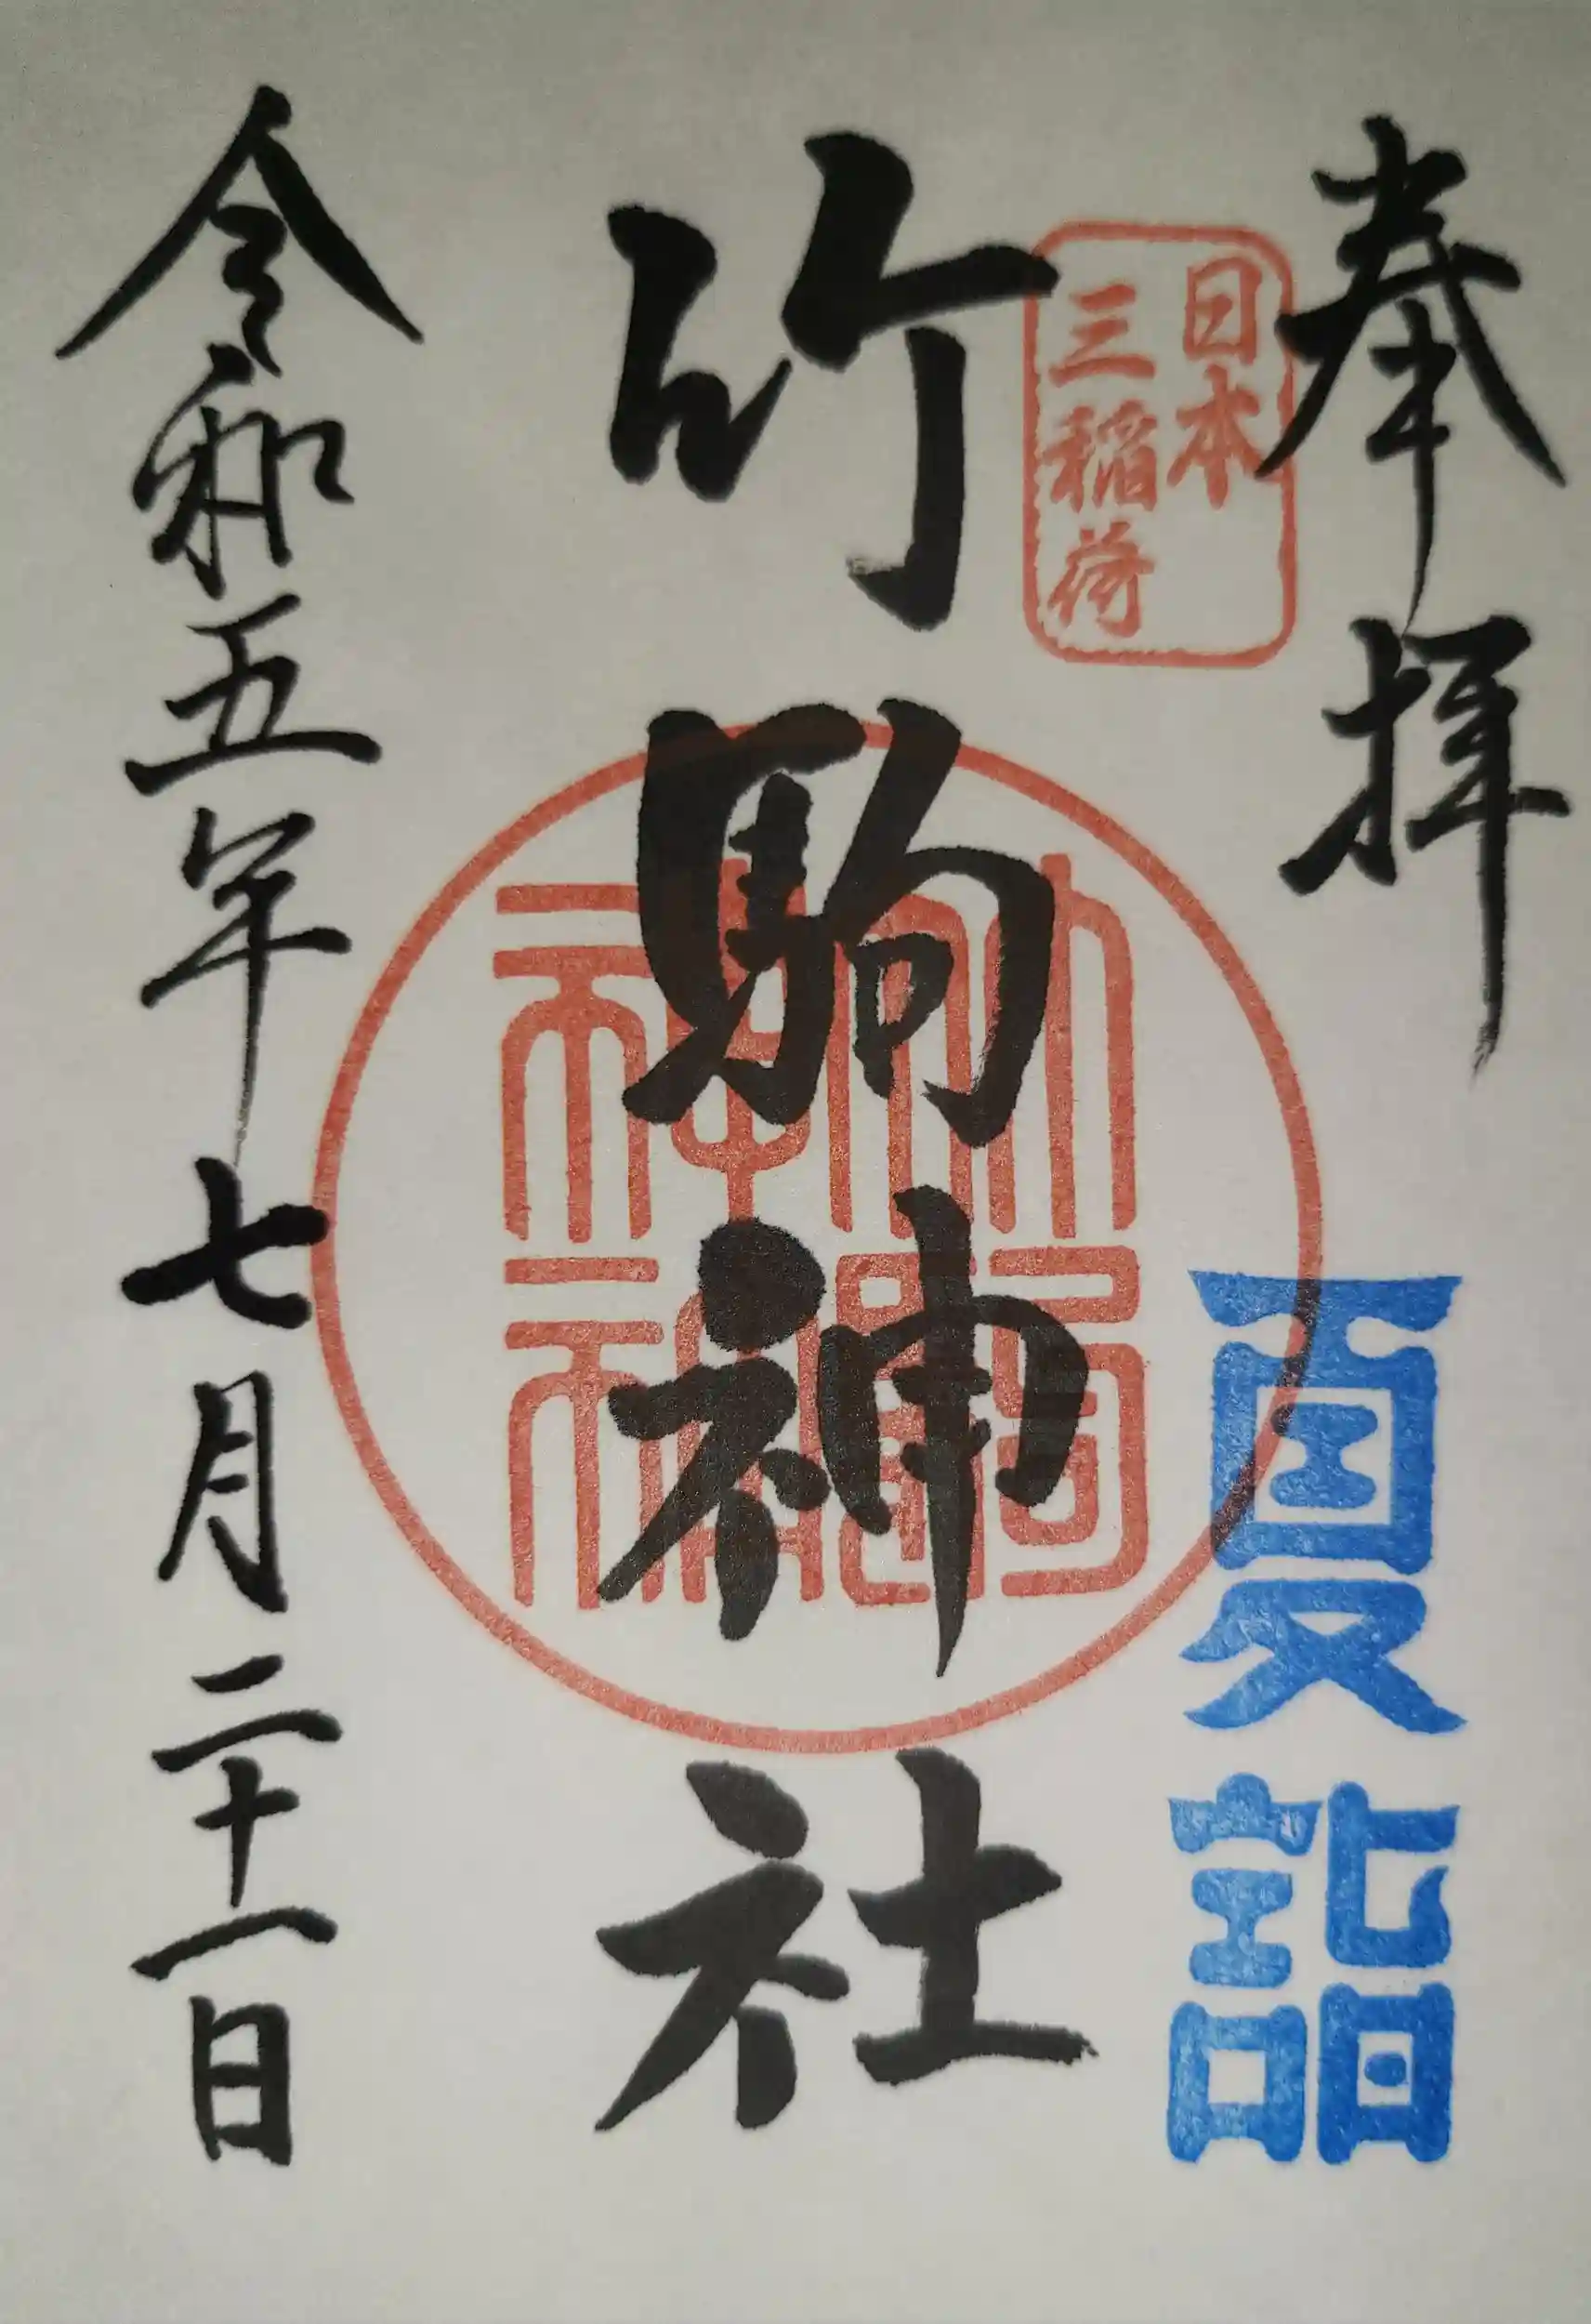 奉拝
日本
三稲荷
夏詣
竹駒神社
竹駒神社
令和五年七月二十一日